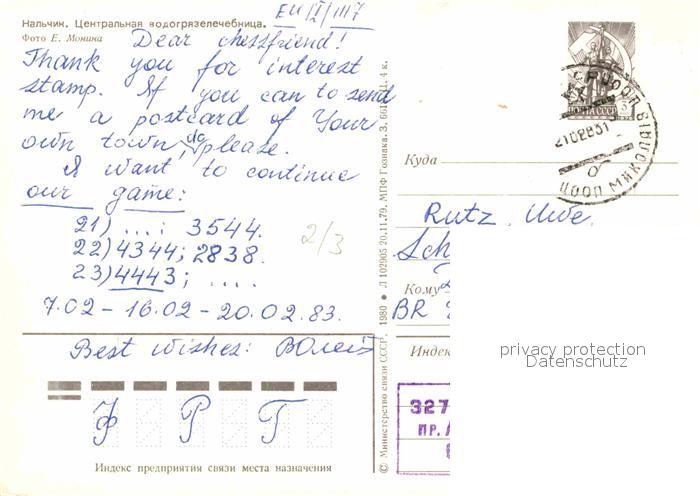 EU/I/III7
Нальчик. Центральная водогрязелечебница.
Фото Е. Монина
Dear chessfriend!
Thank you for interest
stamp. If you can to send
me a postcard of Your
own town, do please.
I want to continue
our game:
21) ...: 3544.
22) 4344; 2838.
23) 4443; ....
2/3
7.02 - 16.02 - 20.02.83.
Best wishes:
Ф Р Г
Индекс предприятия связи места назначения
© Министерство связи СССР, 1980 • Л 102905 20.11.79. МПФ Гознака. З.
Ц. 4 к.
Куда
Rutz, Uwe.
Sch
Кому
BR
Индек
327
ПР.
privacy protection
Datenschutz